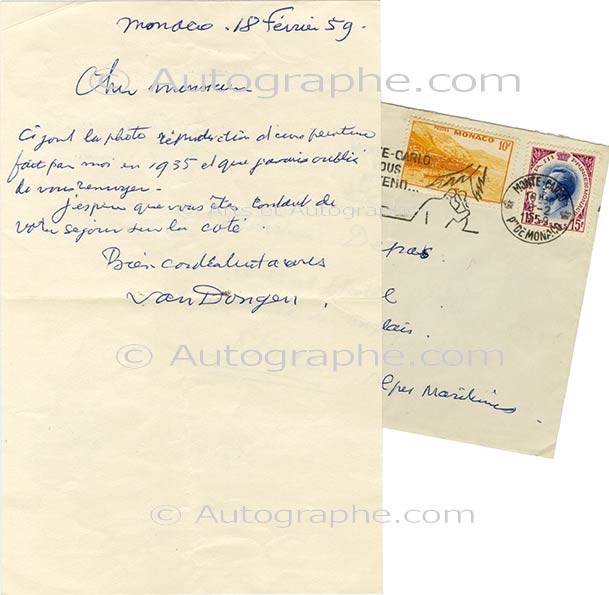 Monaco . 18 Février 59 .
© Autographe.com
Cher monsieur
Ci joint la photo réproduction d'une peinture
fait par moi en 1935 et que j'avais oublié
de vous renvoyer -
© Arts et Autographes
j'espère que vous êtes content de
votre séjour sur la coté .
Bien cordialement a vous
van Dongen .
© Autographe.com
© Autographe.com
POSTES MONACO 10F
TE-CARLO
OUS
TEND...
MONTE-CARLO
18
-2
195
Pté DE MONACO
15F
pas
l
lais
lpes Maritimes